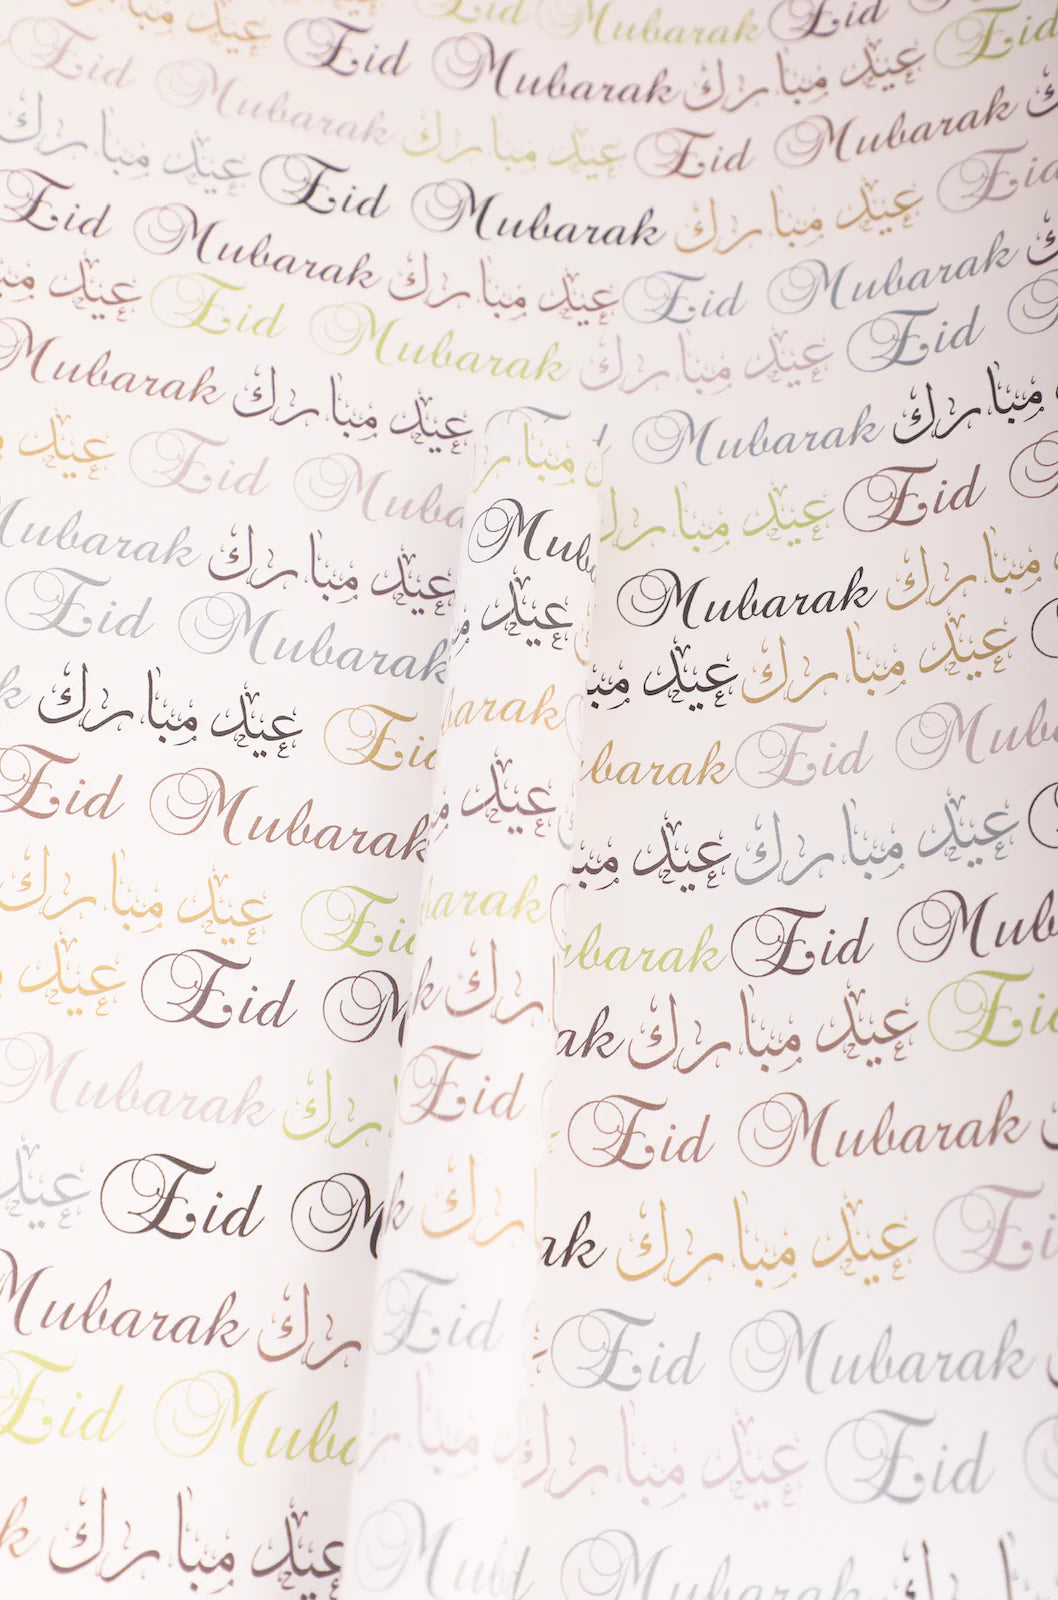 Eid Mubarak Eid
عيد Eid Mubarak عيد مبارك Eid
Eid Mubarak عيد مبارك Eid Mubarak
عيد مبارك Eid Mubarak عيد مبارك Eid
Eid Mubarak عيد مبارك Eid Mubarak
عيد Eid Mubarak عيد مبارك Eid
Mubarak عيد مبارك Mubarak مبارك
عيد Eid عيد مبارك Eid
Mubarak عيد مبارك Mubarak عيد مبارك
Eid Mubarak عيد عيد عيد مبارك
عيد مبارك Eid Eid
Eid Mubarak عيد عيد عيد مبارك
عيد مبارك Eid
عيد Eid عيد مبارك
Mubarak Eid Eid Mubarak
عيد Eid عيد مبارك
Mubarak Eid Eid Mubarak
Eid عيد مبارك Eid
عيد مبارك Mubarak